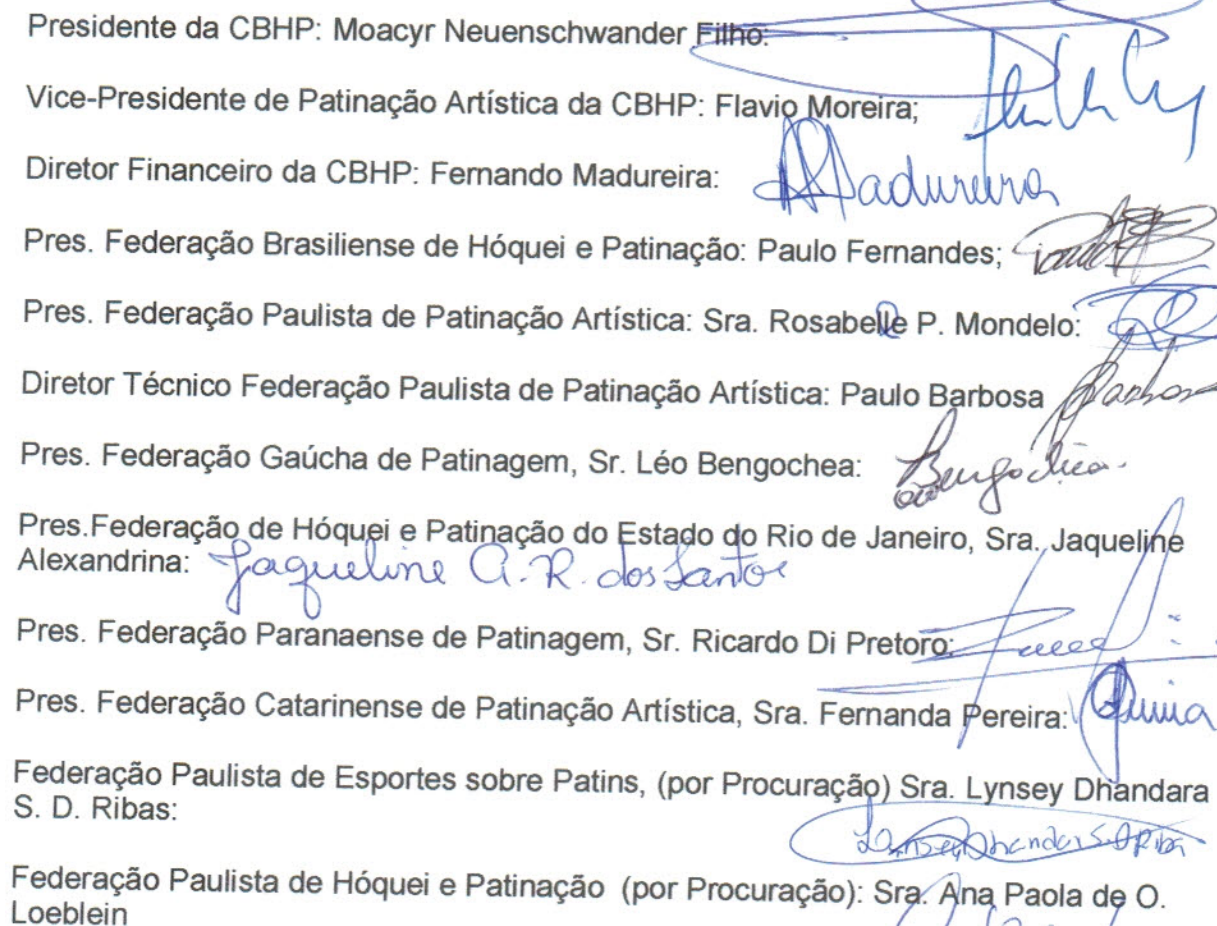 Presidente da CBHP: Moacyr Neuenschwander Filho:
Vice-Presidente de Patinação Artística da CBHP: Flavio Moreira;
Diretor Financeiro da CBHP: Fernando Madureira: Madureira
Pres. Federação Brasiliense de Hóquei e Patinação: Paulo Fernandes;
Pres. Federação Paulista de Patinação Artística: Sra. Rosabelle P. Mondelo:
Diretor Técnico Federação Paulista de Patinação Artística: Paulo Barbosa
Pres. Federação Gaúcha de Patinagem, Sr. Léo Bengochea: Bengochea
Pres.Federação de Hóquei e Patinação do Estado do Rio de Janeiro, Sra. Jaqueline
Alexandrina: Jaqueline A. R. dos Santos
Pres. Federação Paranaense de Patinagem, Sr. Ricardo Di Pretoro:
Pres. Federação Catarinense de Patinação Artística, Sra. Fernanda Pereira:
Federação Paulista de Esportes sobre Patins, (por Procuração) Sra. Lynsey Dhandara
S. D. Ribas:
Federação Paulista de Hóquei e Patinação (por Procuração): Sra. Ana Paola de O.
Loeblein